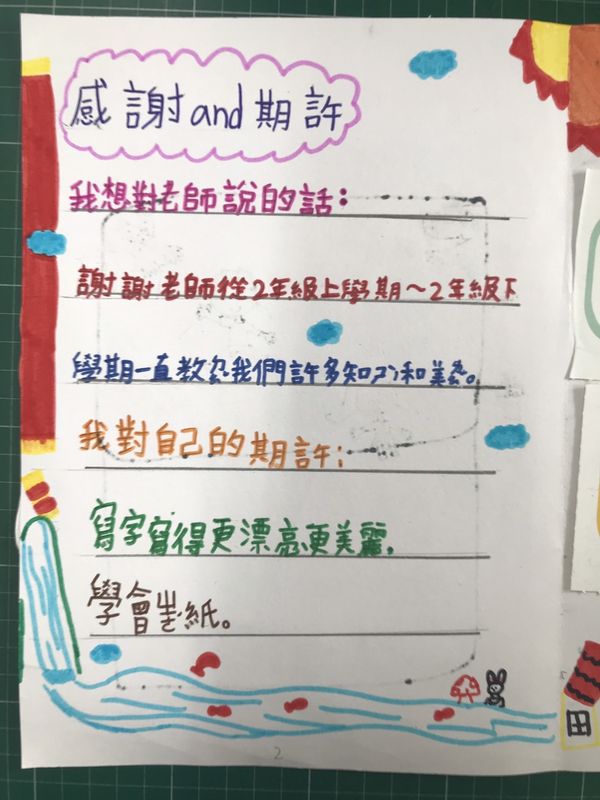 感謝and期許
我想對老師說的話：
謝謝老師從2年級上學期～2年級下
學期一直教我們許多知和美。
我對自己的期許：
寫字寫得更漂亮更美麗.
學會紙。
田
2